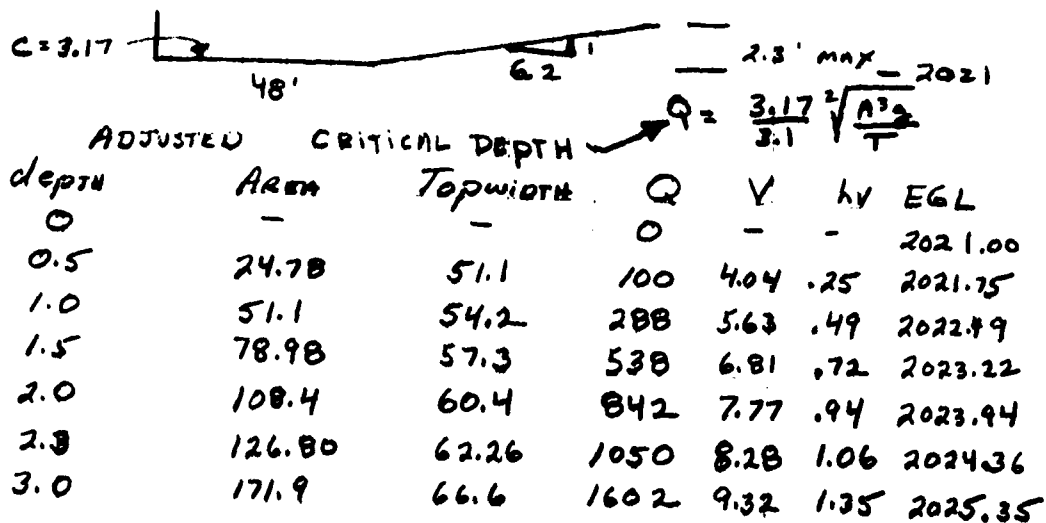 C = 3.17
48'
6.2
1
2.3' max
2021
Q = 3.17/3.1 ²√(A³g/T)
ADJUSTED CRITICAL DEPTH
depTH AREA Topwidth Q V hv EGL
0 - - 0 - - 2021.00
0.5 24.78 51.1 100 4.04 .25 2021.75
1.0 51.1 54.2 288 5.63 .49 2022.49
1.5 78.98 57.3 538 6.81 .72 2023.22
2.0 108.4 60.4 842 7.77 .94 2023.94
2.3 126.80 62.26 1050 8.28 1.06 2024.36
3.0 171.9 66.6 1602 9.32 1.35 2025.35